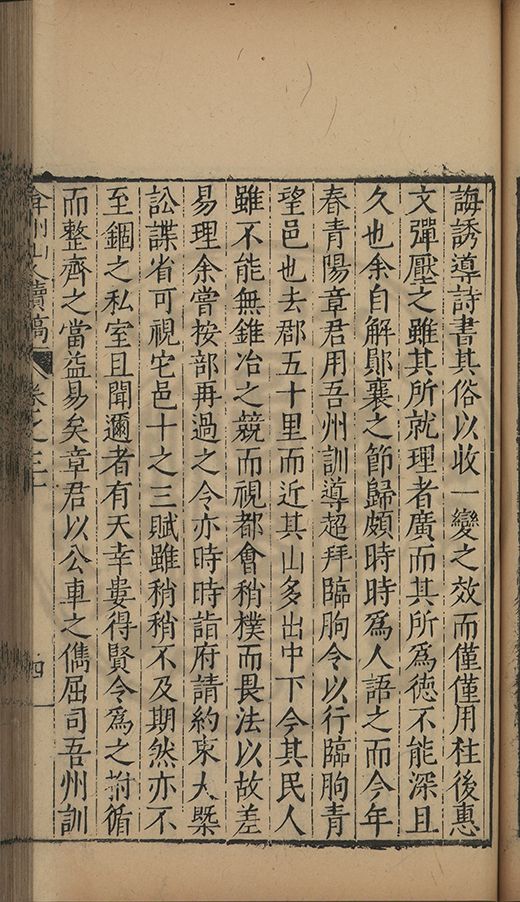 誨誘導詩書其俗以收一變之效而僅僅用柱後惠
文彈壓之雖其所就理者廣而其所爲德不能深且
久也余自解鄖襄之節歸頗時時爲人語之而今年
春青陽章君用吾州訓導超拜臨朐令以行臨朐青
望邑也去郡五十里而近其山多出中下今其民人
雖不能無錐冶之競而視都會稍樸而畏法以故差
易理余嘗按部再過之令亦時時詣府請約束大槩
訟諜省可視宅邑十之三賦雖稍稍不及期然亦不
至錮之私室且聞邇者有天幸婁得賢令爲之拊循
而整齊之當益易矣章君以公車之儁屈司吾州訓
弇州山人續稿 卷之三十 四